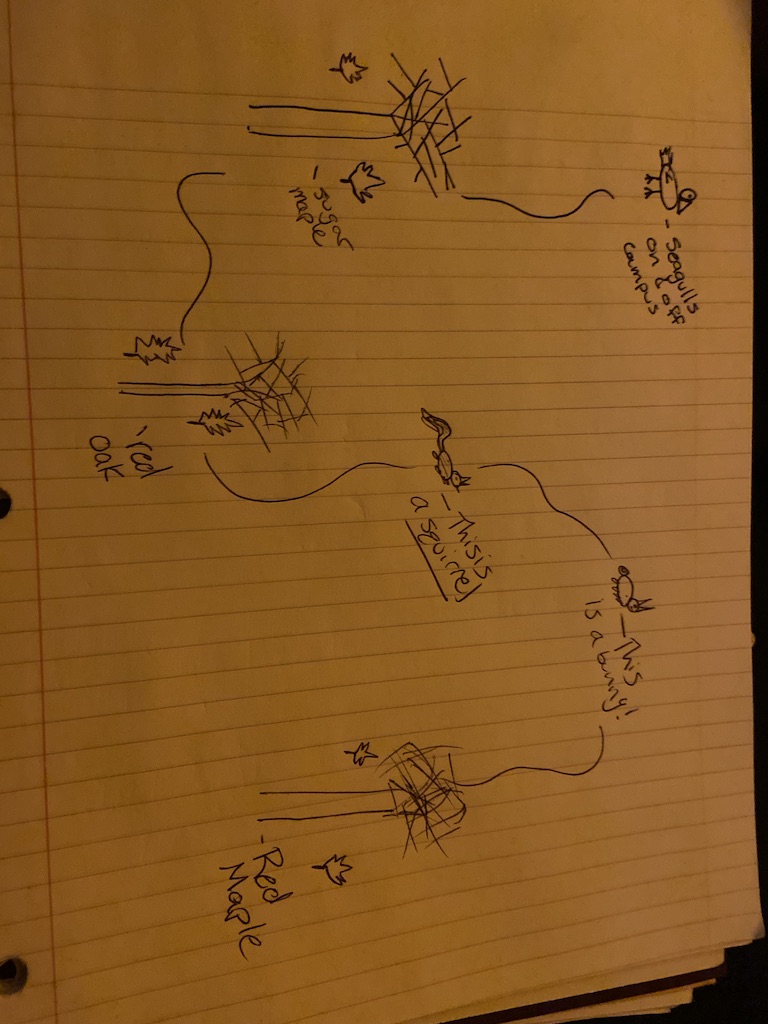 - seagulls
on & off
campus
- sugar
maple
- This
is a bunny!
- This is
a squirrel
- red
oak
- Red
Maple